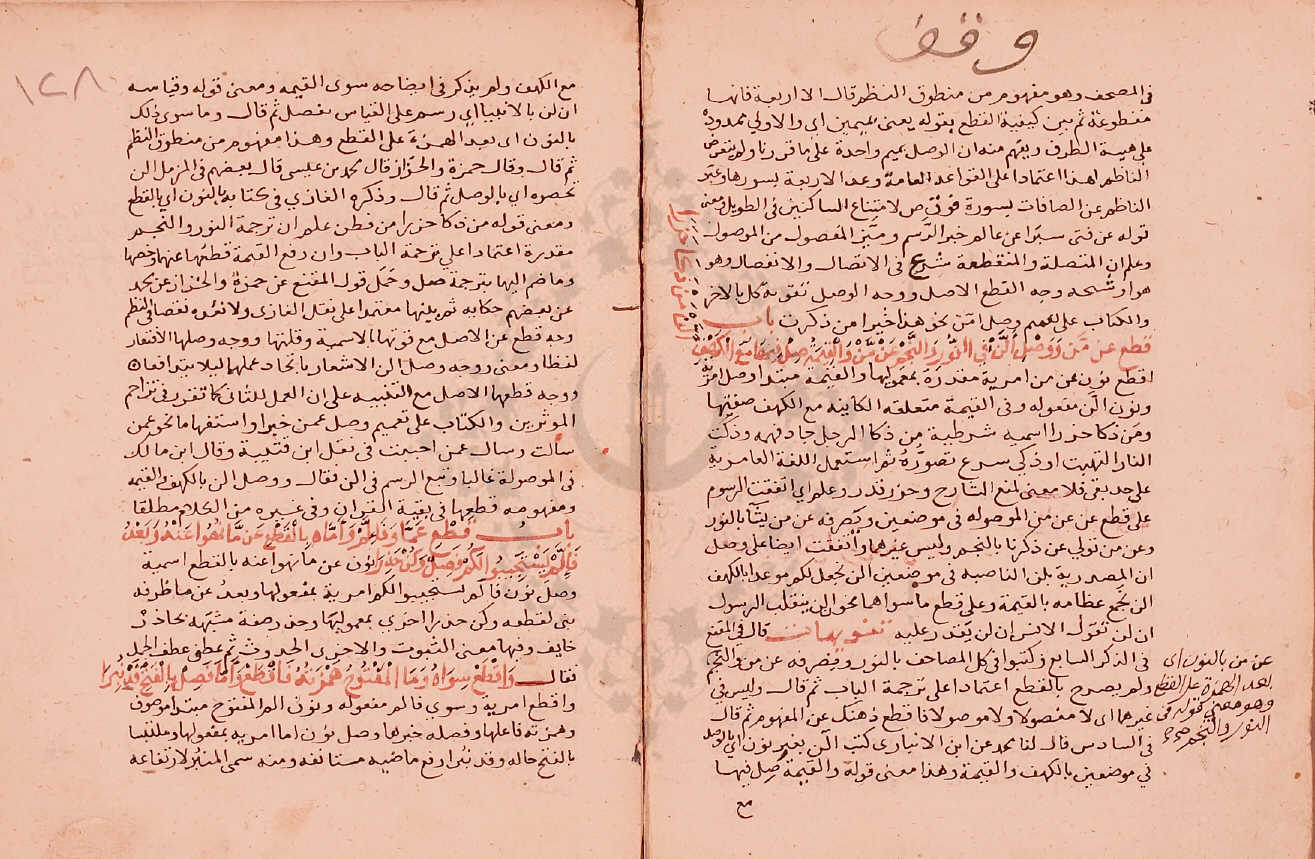 وقف
في المصحف وهو مفهوم من منطوق النظم قال الا اربعة فانها
مقطوعة ثم بين كيفية القطع بقوله يعني بميمين اي والاولي ممدودة
علي هيئة الطرف ويفهم منه ان الوصل بميم واحدة علي ما قررنا ولم يتعرض
الناظم لهذا اعتمادا علي القواعد العامة وعد الاربعة بسورها وعبر
الناظم عن الصافات بسورة فوق ص لامتناع الساكنين في الطويل ومعني
قوله عن فتي سبرا عن عالم خبر الرسم وميز المفصول من الموصول
وعلم ان المتصلة والمنقطعة شرع في الاتصال والانفصال وهو
وجه القطع الاصل ووجه الوصل تقوية كل بالاخر
والكتاب علي وصل امن نحو هذا خيرا من ذكرت باب
قطع عن من ووصل الن في النور والنجم عن من والقيمة صل فيها مع الكهف
من ذكا حزرا
اقطع نون عن من امرية مقدرة بمعموليها والقيمة مبتدا وصل امرية
ونون الن مفعوله وفي القيمة متعلقه الكاينة مع الكهف صفتها
ومن ذكا حزرا اسمية شرطية من ذكا الرجل جاد فهمه وذكت
النار التهبت او ذكي سرع تصوره ثم استعمل اللغة العامرية
علي حد بقي فلا معني لمنع الشارح وحزر قدر وعلم اي اتفقت الرسوم
علي قطع عن من الموصوله في موضعين ويصرفه عن من يشآ بالنور
وعن من تولي عن ذكرنا بالنجم وليس غيرهما واتفقت ايضا علي وصل
ان المصدرية بلن الناصبة في موضعين الن نجعل لكم موعدا بالكهف
الن نجمع عظامه بالقيمة وعلي قطع ما سواهما نحو ان لن ينقلب الرسول
ان لن تقول الانس ان لن يقدر عليه تنويهات قال في المقنع
في الذكر السابع وكتبوا في كل المصاحف بالنور ويصرفه عن من والنجم
ولم يصرح بالقطع اعتمادا علي ترجمة الباب ثم قال وليس في
غيرهما اي لا مفصولا ولا موصولا فاقطع ذهنك عن المفهوم ثم قال
في السادس قال لنا محمد عن ابن الانباري كتب الن بغير نون اي بالوصل
في موضعين بالكهف والقيمة وهذا معني قوله والقيمة صل فيها
مع
عن من بالنون اي
بعد الهمزة علي القطع
وهو معني قوله في
النور والنجم صح
١٢٨
مع الكهف ولم يذكر في ايضاحه سوي القيمة ومعني قوله وقياسه
ان لن بالانبيا اي رسم علي القياس بفصل ثم قال وما سوي ذلك
بالنون اي بعد الهمزة علي القطع وهذا مفهوم من منطوق النظم
ثم قال وقال حمزة والخزاز قال محمد بن عيسي قال بعضهم في المزمل الن
تحصوه اي بالوصل ثم قال وذكره الغازي في كتابه بالنون اي بالقطع
ومعني قوله من ذكا حزرا من فطن علم ان ترجمة النور والنجم
مقدرة اعتمادا علي ترجمة الباب وان رفع القيمة قطعها عنها خصها
وما ضم اليها بترجمة صل وحمل قول المقنع عن حمزة والخزاز عن محمد
عن بعضهم حكاية تمريضها معتمدا علي نقل الغازي ولا نعده نقصا في النظم
وجه قطع عن الاصل مع قوتها بالاسمية وقلتها ووجه وصلها الافتقار
لفظا ومعني ووجه وصل الن الاشعار باتحاد عملها ليلا يترافعان
ووجه قطعها الاصل مع التنبيه علي ان العمل للثاني كما تقرر في تزاحم
الموثرين والكتاب علي تعميم وصل عمن خبرا واستفهاما نحو عمن
سألت وسال عمن احببت في نقل ابن قتيبة وقال ابن مالك
في الموصولة غالبا وتبع الرسم في الن فقال ووصل الن بالكهف والقيمة
ومفهومه قطعها في بقية القران وفي غيره من الكلام مطلقا
باب قطع عما وفالم واما بالقطع عن ما نهوا عنه وبعد
فالم يستجيبوا لكم وصل وكن حذرا نون عن ما نهوا عنه بالقطع اسمية
وصل نون فالم يستجيبوا لكم امرية بمفعولها وبعد عن ما ظرفه
بني لقطعه وكن حذرا اخري بمعموليها وحذر صفة مشبهة بحاذر
خايف وفيها معني الثبوت والاخري الحدوث ثم عطف عطف الجمل
فقال واقطع سواه وما المفتوح همزته فاقطع واما فصل بالفتح قد نبرا
واقطع امرية وسوي فالم مفعوله ونون الم المفتوح مبتدا موصوف
وهمزته فاعلها وفصله خبرها وصل نون اما امرية بمفعولها وملتبسا
بالفتح حاله وقد نبر ارفع ماضية مستانفة ومنه سمي المنبر لارتفاعه